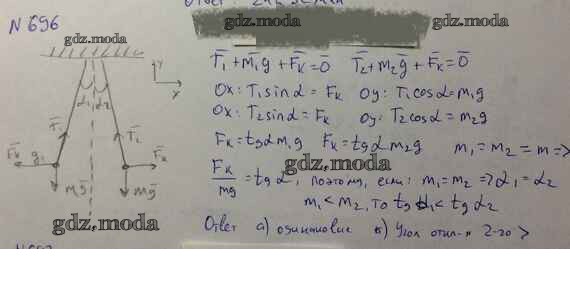 Ответ:
N 696
gdz.moda
gdz.moda
gdz.moda
F̄₁ + m̄₁g + F̄ₖ = 0̄ T̄₂ + m₂ḡ + F̄ₖ = 0̄
Ox: T₁ sin α = Fₖ Oy: T₁ cos α = m₁g
Ox: T₂ sin α = Fₖ Oy: T₂ cos α = m₂g
Fₖ = tg α m₁g Fₖ = tg α m₂g m₁ = m₂ = m =>
gdz.moda
Fₖ/mg = tg α, поэтому, если: m₁ = m₂ => α₁ = α₂
m₁ < m₂, то tg α₁ < tg α₂
Ответ а) одинаковые в) Угол откл-я 2-го >
gdz.moda
y
x
α₁ α₂
T̄₁ T̄₂
F̄ₖ g₁ F̄ₖ
mḡ mḡ